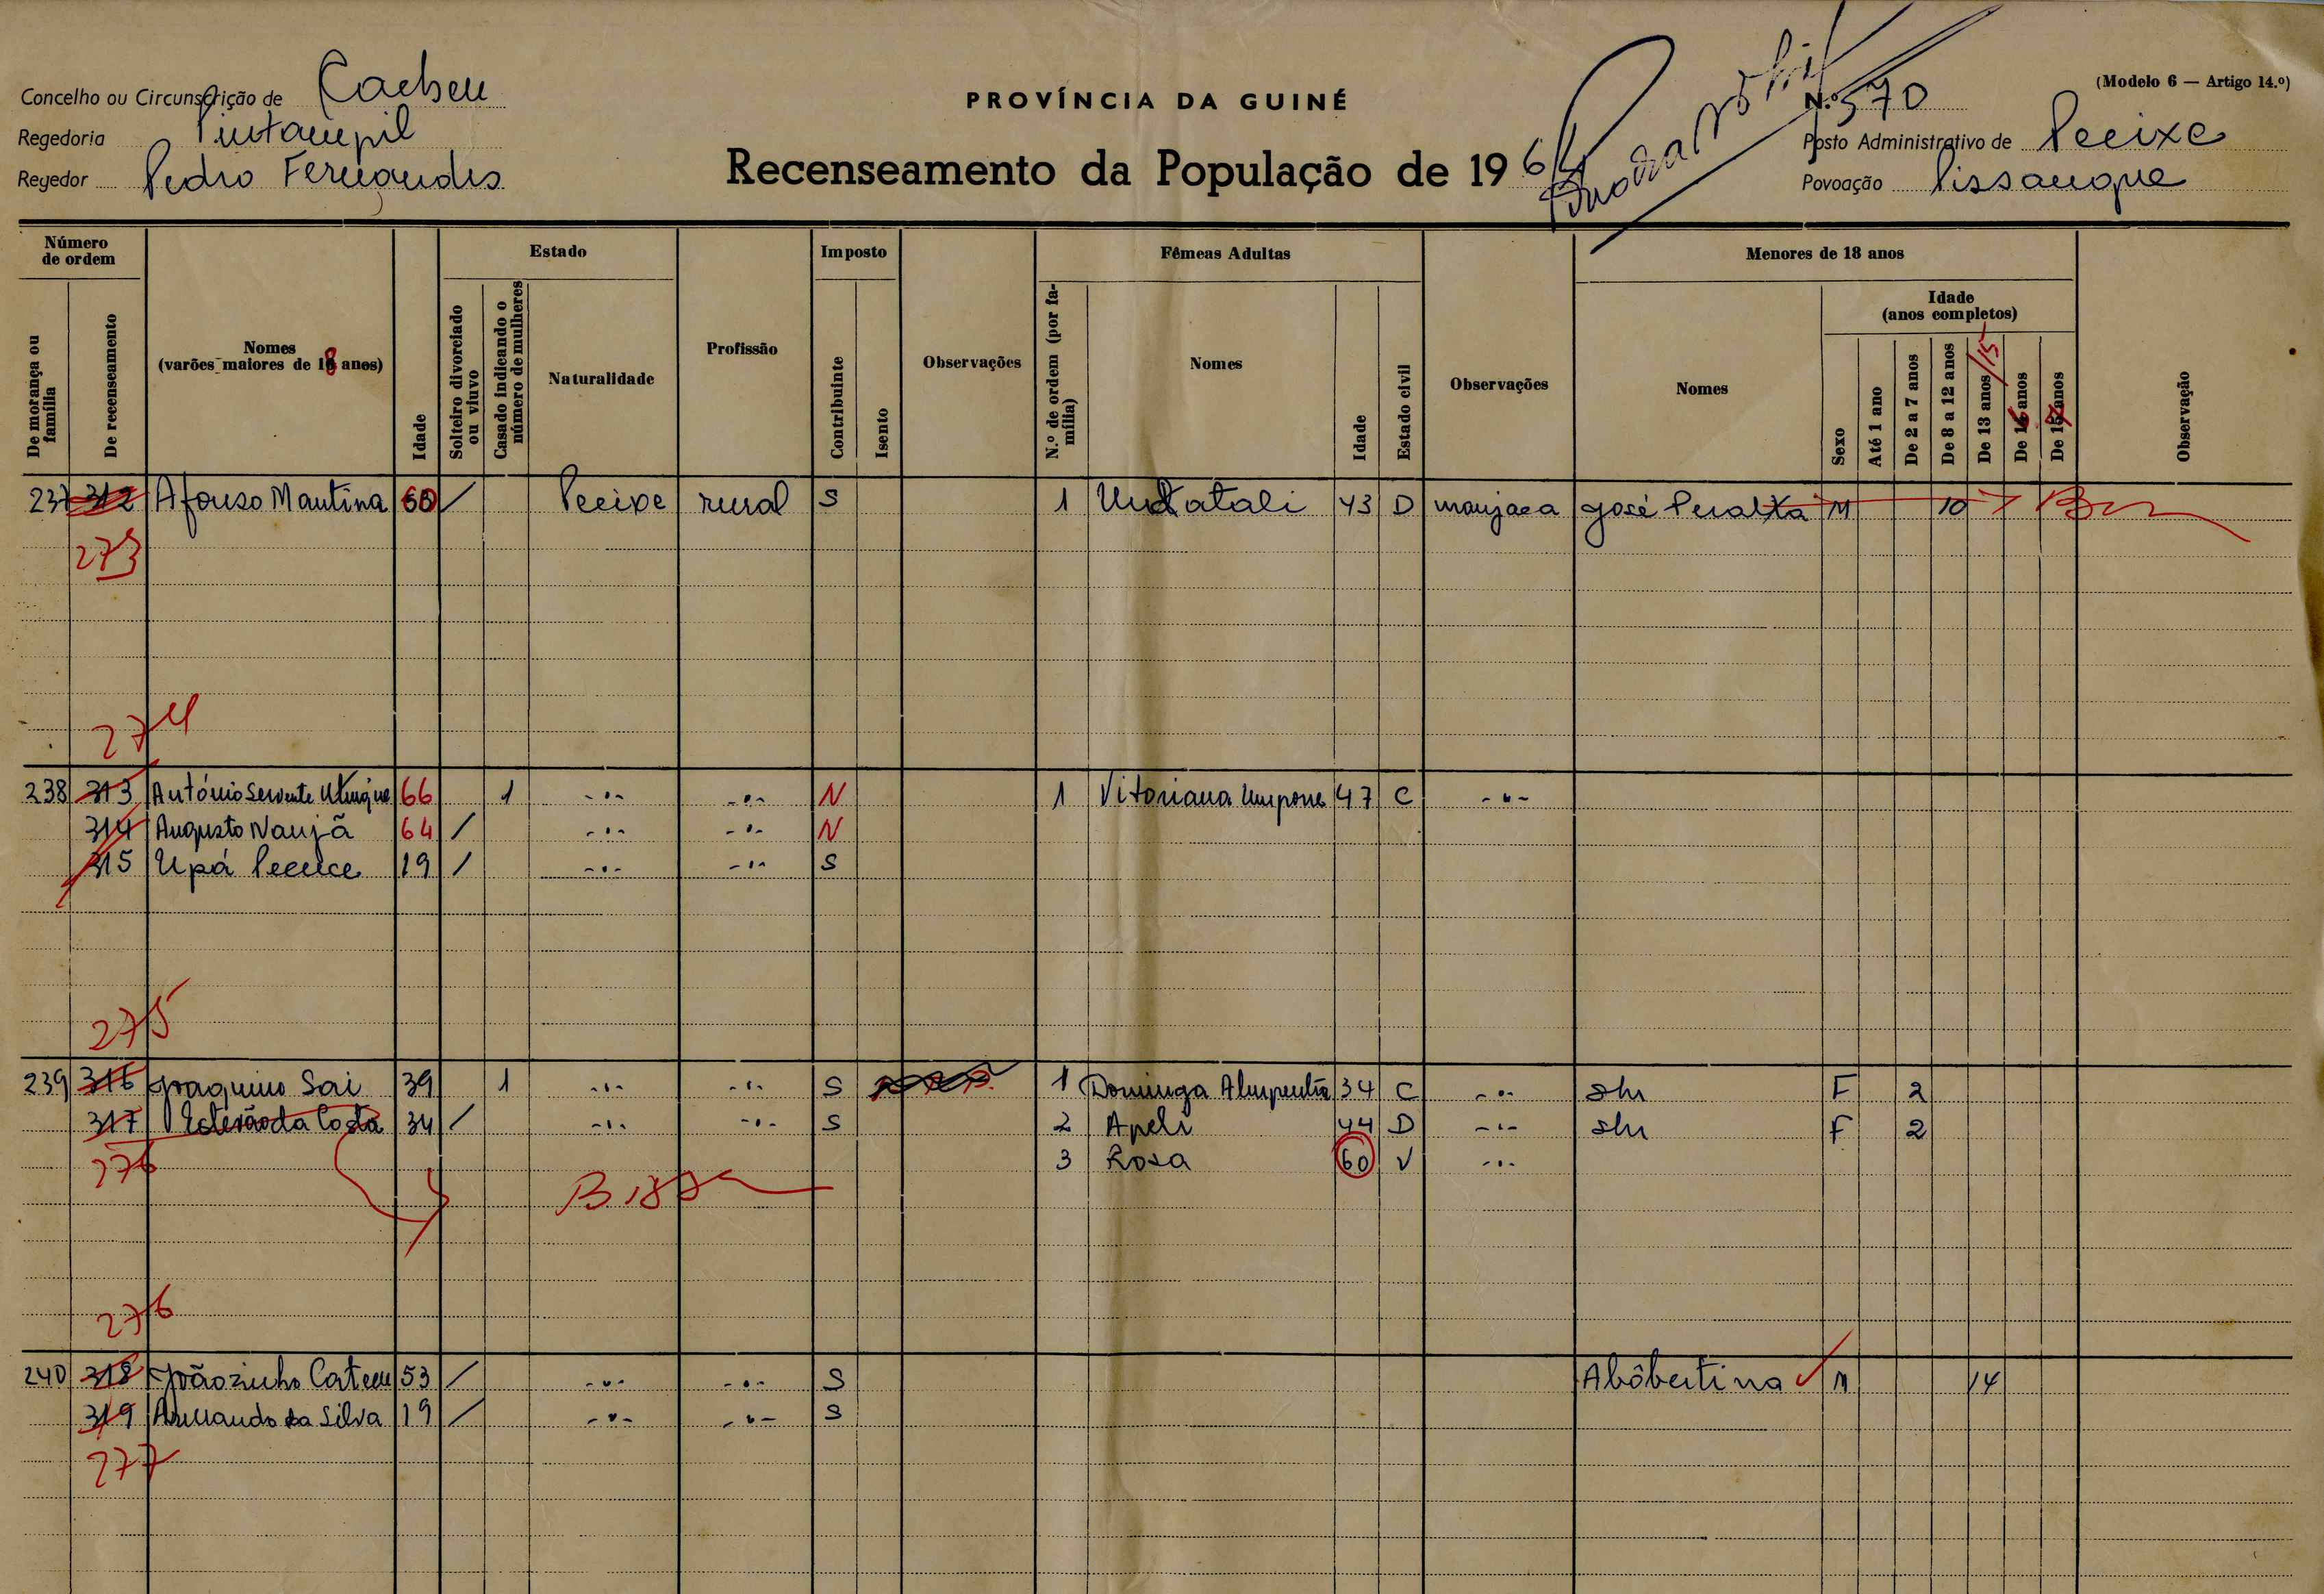 Concelho ou Circunscrição de Cacheu
Regedoria Pintampil
Regedor Pedro Fernandes
PROVÍNCIA DA GUINÉ
Recenseamento da População de 1964
(Modelo 6 — Artigo 14.º)
N.º 570
Posto Administrativo de Pecixe
Povoação Pissangue
Número de ordem
De morança ou família
De recenseamento
Nomes
(varões maiores de 18 anos)
Idade
Estado
Solteiro divorciado ou viuvo
Casado indicando o número de mulheres
Naturalidade
Profissão
Imposto
Contribuinte
Isento
Observações
Fêmeas Adultas
N.º de ordem (por família)
Nomes
Idade
Estado civil
Observações
Menores de 18 anos
Nomes
Idade
(anos completos)
Sexo
Até 1 ano
De 2 a 7 anos
De 8 a 12 anos
De 13 anos /15
De 16 anos
De 17 anos
Observação
237 312 Afonso Mantina 60 / Pecixe rural S 1 43 D manjaca José Peralta M 10
273
274
238 313 António Servente 66 1 -"- -"- N 1 Vitoriana 47 C -"-
314 Augusto Nanjã 64 / -"- -"- N
315 Upá 19 / -"- -"- S
275
239 316 Joaquim Sai 39 1 -"- -"- S 1 Dominga 34 C -"- shr F 2
317 Estevão da Costa 34 / -"- -"- S 2 Apeli 44 D -"- shr F 2
276 3 Rosa 60 V -"-
276
240 318 Joãozinho 53 / -"- -"- S Abôbertina M 14
319 Armando da Silva 19 / -"- -"- S
277